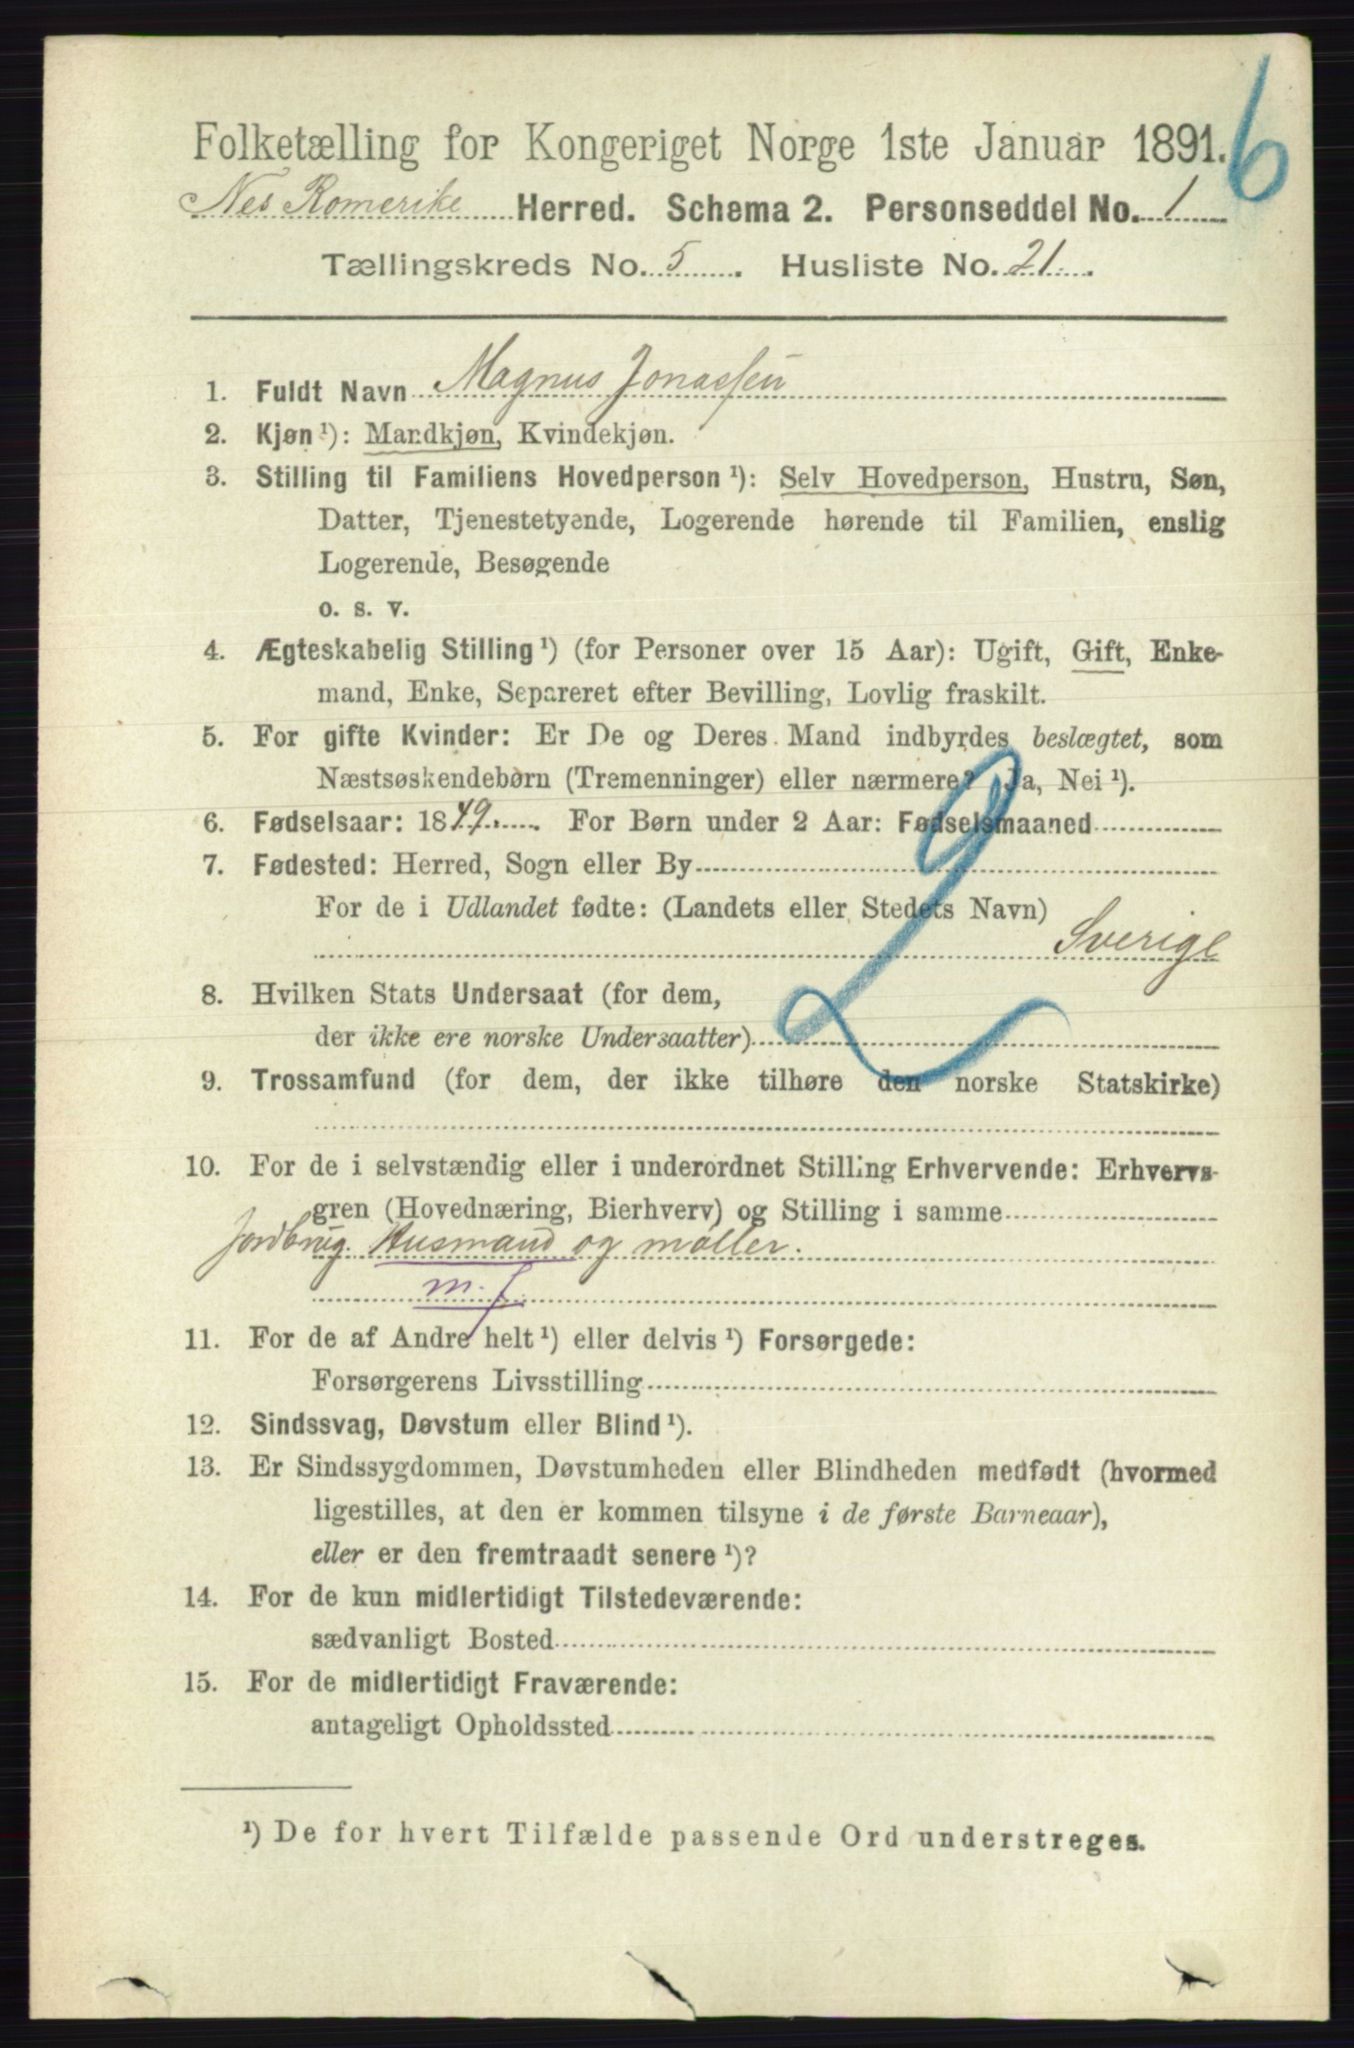 6
Folketælling for Kongeriget Norge 1ste Januar 1891.
Nes Romerike Herred. Schema 2. Personseddel No. 1
Tællingskreds No. 5. Husliste No. 21.
1. Fuldt Navn Magnus Jonassen
2. Kjøn ¹): Mandkjøn, Kvindekjøn.
3. Stilling til Familiens Hovedperson ¹): Selv Hovedperson, Hustru, Søn,
Datter, Tjenestetyende, Logerende hørende til Familien, enslig
Logerende, Besøgende
o. s. v.
4. Ægteskabelig Stilling ¹) (for Personer over 15 Aar): Ugift, Gift, Enke-
mand, Enke, Separeret efter Bevilling, Lovlig fraskilt.
5. For gifte Kvinder: Er De og Deres Mand indbyrdes beslægtet, som
Næstsøskendebørn (Tremenninger) eller nærmere? Ja, Nei ¹).
6. Fødselsaar: 1849. For Børn under 2 Aar: Fødselsmaaned
7. Fødested: Herred, Sogn eller By
For de i Udlandet fødte: (Landets eller Stedets Navn)
Sverige
8. Hvilken Stats Undersaat (for dem,
der ikke ere norske Undersaatter)
9. Trossamfund (for dem, der ikke tilhøre den norske Statskirke)
10. For de i selvstændig eller i underordnet Stilling Erhvervende: Erhvervs-
gren (Hovednæring, Bierhverv) og Stilling i samme
Jordbrug. Husmand og møller.
m. j.
11. For de af Andre helt ¹) eller delvis ¹) Forsørgede:
Forsørgerens Livsstilling
12. Sindssvag, Døvstum eller Blind ¹).
13. Er Sindssygdommen, Døvstumheden eller Blindheden medfødt (hvormed
ligestilles, at den er kommen tilsyne i de første Barneaar),
eller er den fremtraadt senere ¹)?
14. For de kun midlertidigt Tilstedeværende:
sædvanligt Bosted
15. For de midlertidigt Fraværende:
antageligt Opholdssted
¹) De for hvert Tilfælde passende Ord understreges.